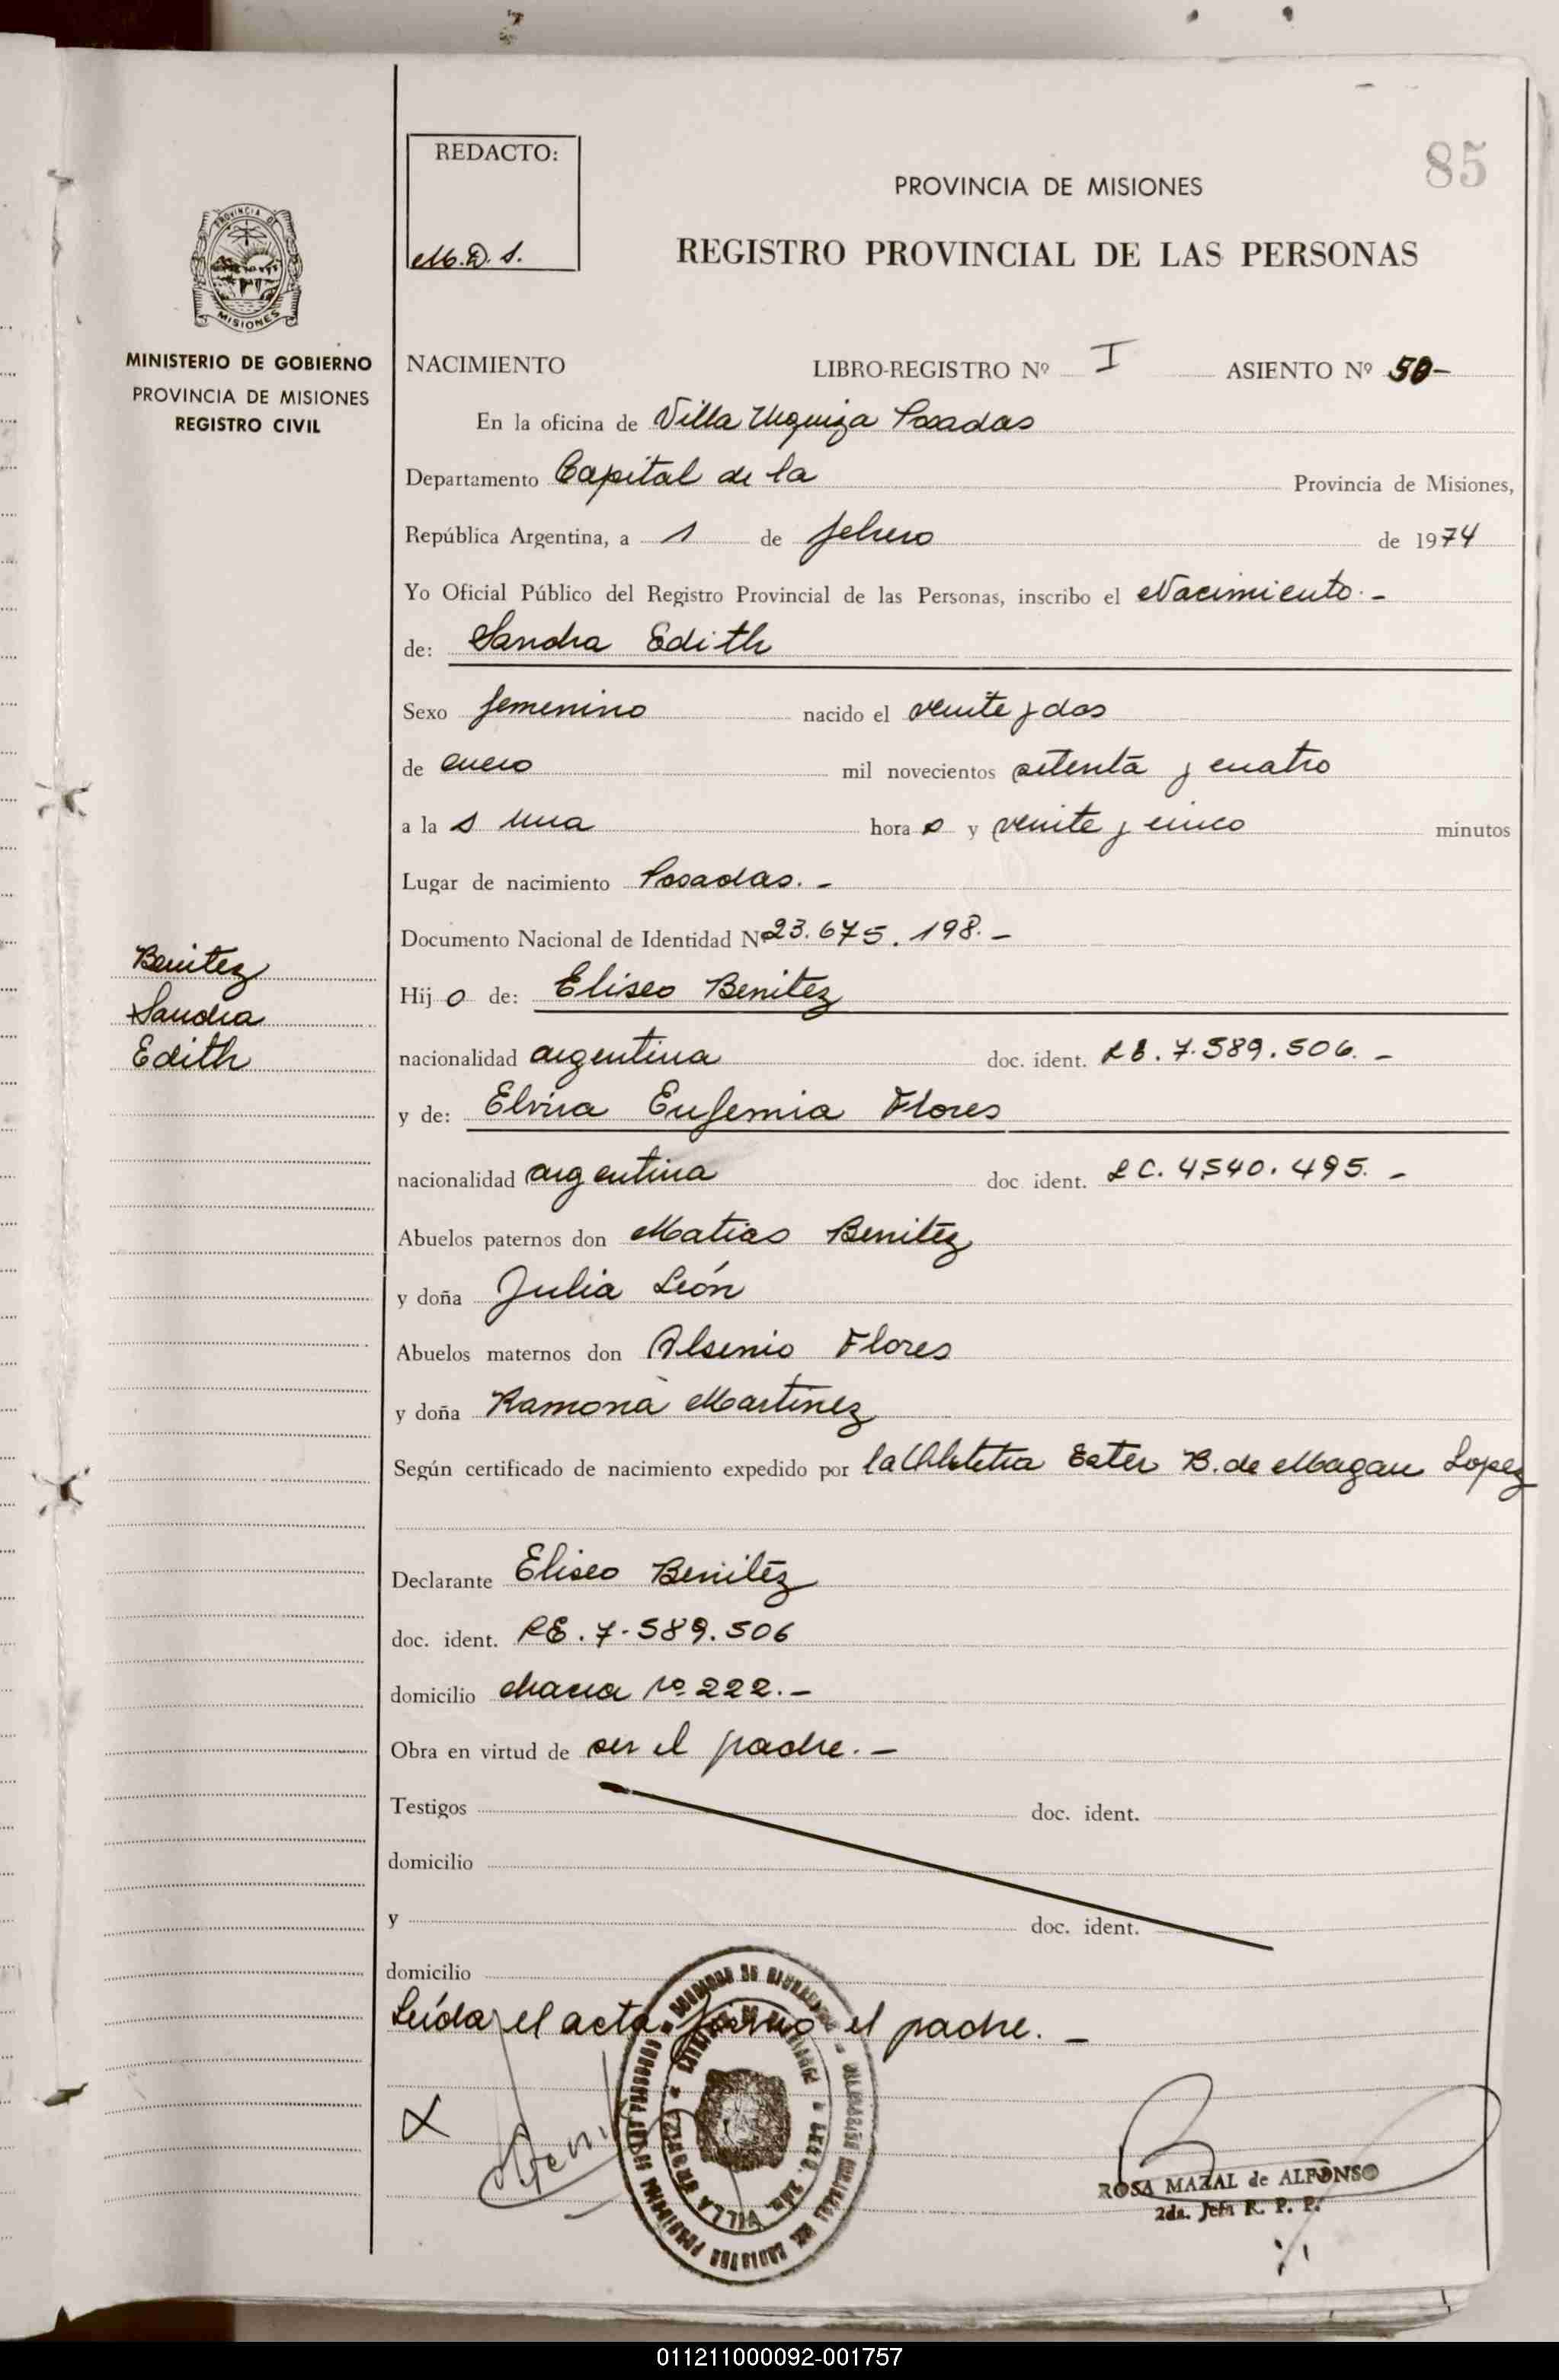 85
REDACTO:
M.D.S.
PROVINCIA DE MISIONES
REGISTRO PROVINCIAL DE LAS PERSONAS
PROVINCIA DE
MISIONES
MINISTERIO DE GOBIERNO
PROVINCIA DE MISIONES
REGISTRO CIVIL
NACIMIENTO LIBRO-REGISTRO Nº I ASIENTO Nº 50-
En la oficina de Villa Urquiza Posadas
Departamento Capital de la Provincia de Misiones,
República Argentina, a 1 de febrero de 1974
Yo Oficial Público del Registro Provincial de las Personas, inscribo el Nacimiento.-
de: Sandra Edith
Sexo femenino nacido el veinte y dos
de enero mil novecientos setenta y cuatro
a la s una hora s y veinte y cinco minutos
Lugar de nacimiento Posadas.-
Documento Nacional de Identidad Nº 23.675.198.-
Benitez
Sandra
Edith
Hij o de: Eliseo Benitez
nacionalidad argentina doc. ident. LE. 7.589.506.-
y de: Elvira Eufemia Flores
nacionalidad argentina doc ident. LC. 4540.495.-
Abuelos paternos don Matias Benitez
y doña Julia León
Abuelos maternos don Alsenio Flores
y doña Ramona Martinez
Según certificado de nacimiento expedido por la Ester B. de Magan Lopez
Declarante Eliseo Benitez
doc. ident. LE. 7.589.506
domicilio chacra Nº 222.-
Obra en virtud de ser el padre.-
Testigos doc. ident.
domicilio
y doc. ident.
domicilio
Leída el acta firma el padre.-
VILLA URQUIZA
ROSA MAZAL de ALFONSO
2da. Jefa R. P. P.
011211000092-001757